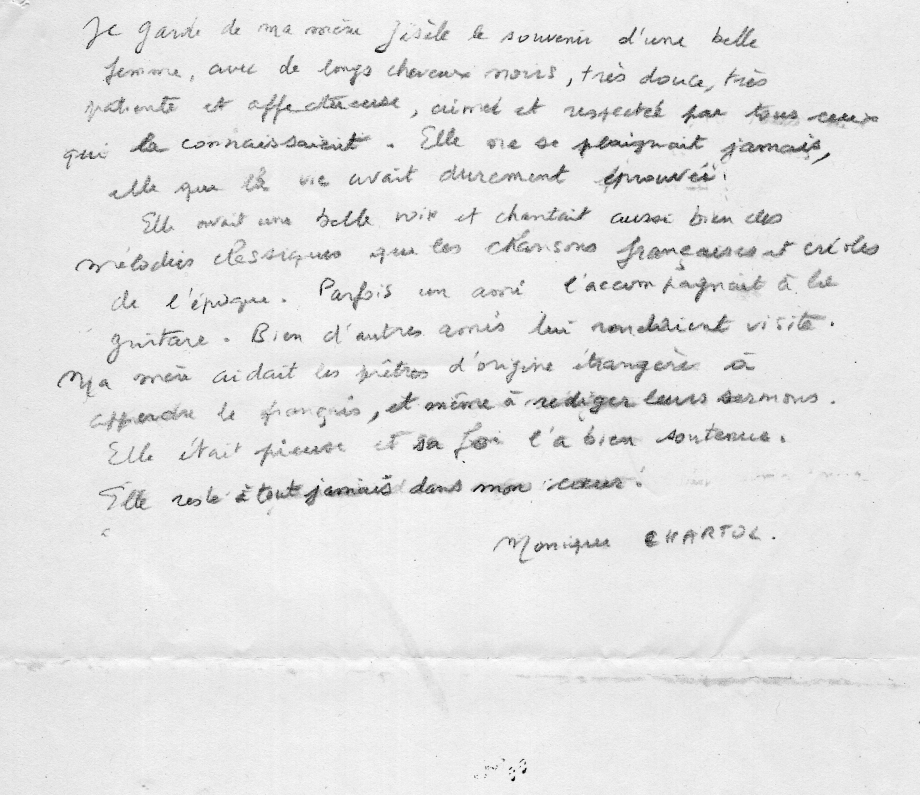 Je garde de ma mère Gisèle le souvenir d'une belle
femme, avec de longs cheveux noirs, très douce, très
patiente et affectueuse, aimée et respectée par tous ceux
qui la connaissaient. Elle ne se plaignait jamais,
elle que la vie avait durement éprouvée.
Elle avait une belle voix et chantait aussi bien des
mélodies classiques que les chansons françaises et créoles
de l'époque. Parfois un ami l'accompagnait à la
guitare. Bien d'autres amis lui rendaient visite.
Ma mère aidait les prêtres d'origine étrangère à
apprendre le français, et même à rediger leurs sermons.
Elle était pieuse et sa foi l'a bien soutenue.
Elle reste à tout jamais dans mon cœur.
Monique CHARTOL.